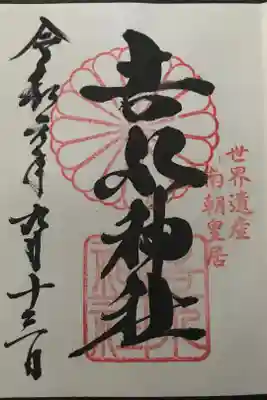 世界遺産
南朝皇居
吉水神社
令和六年九月十三日